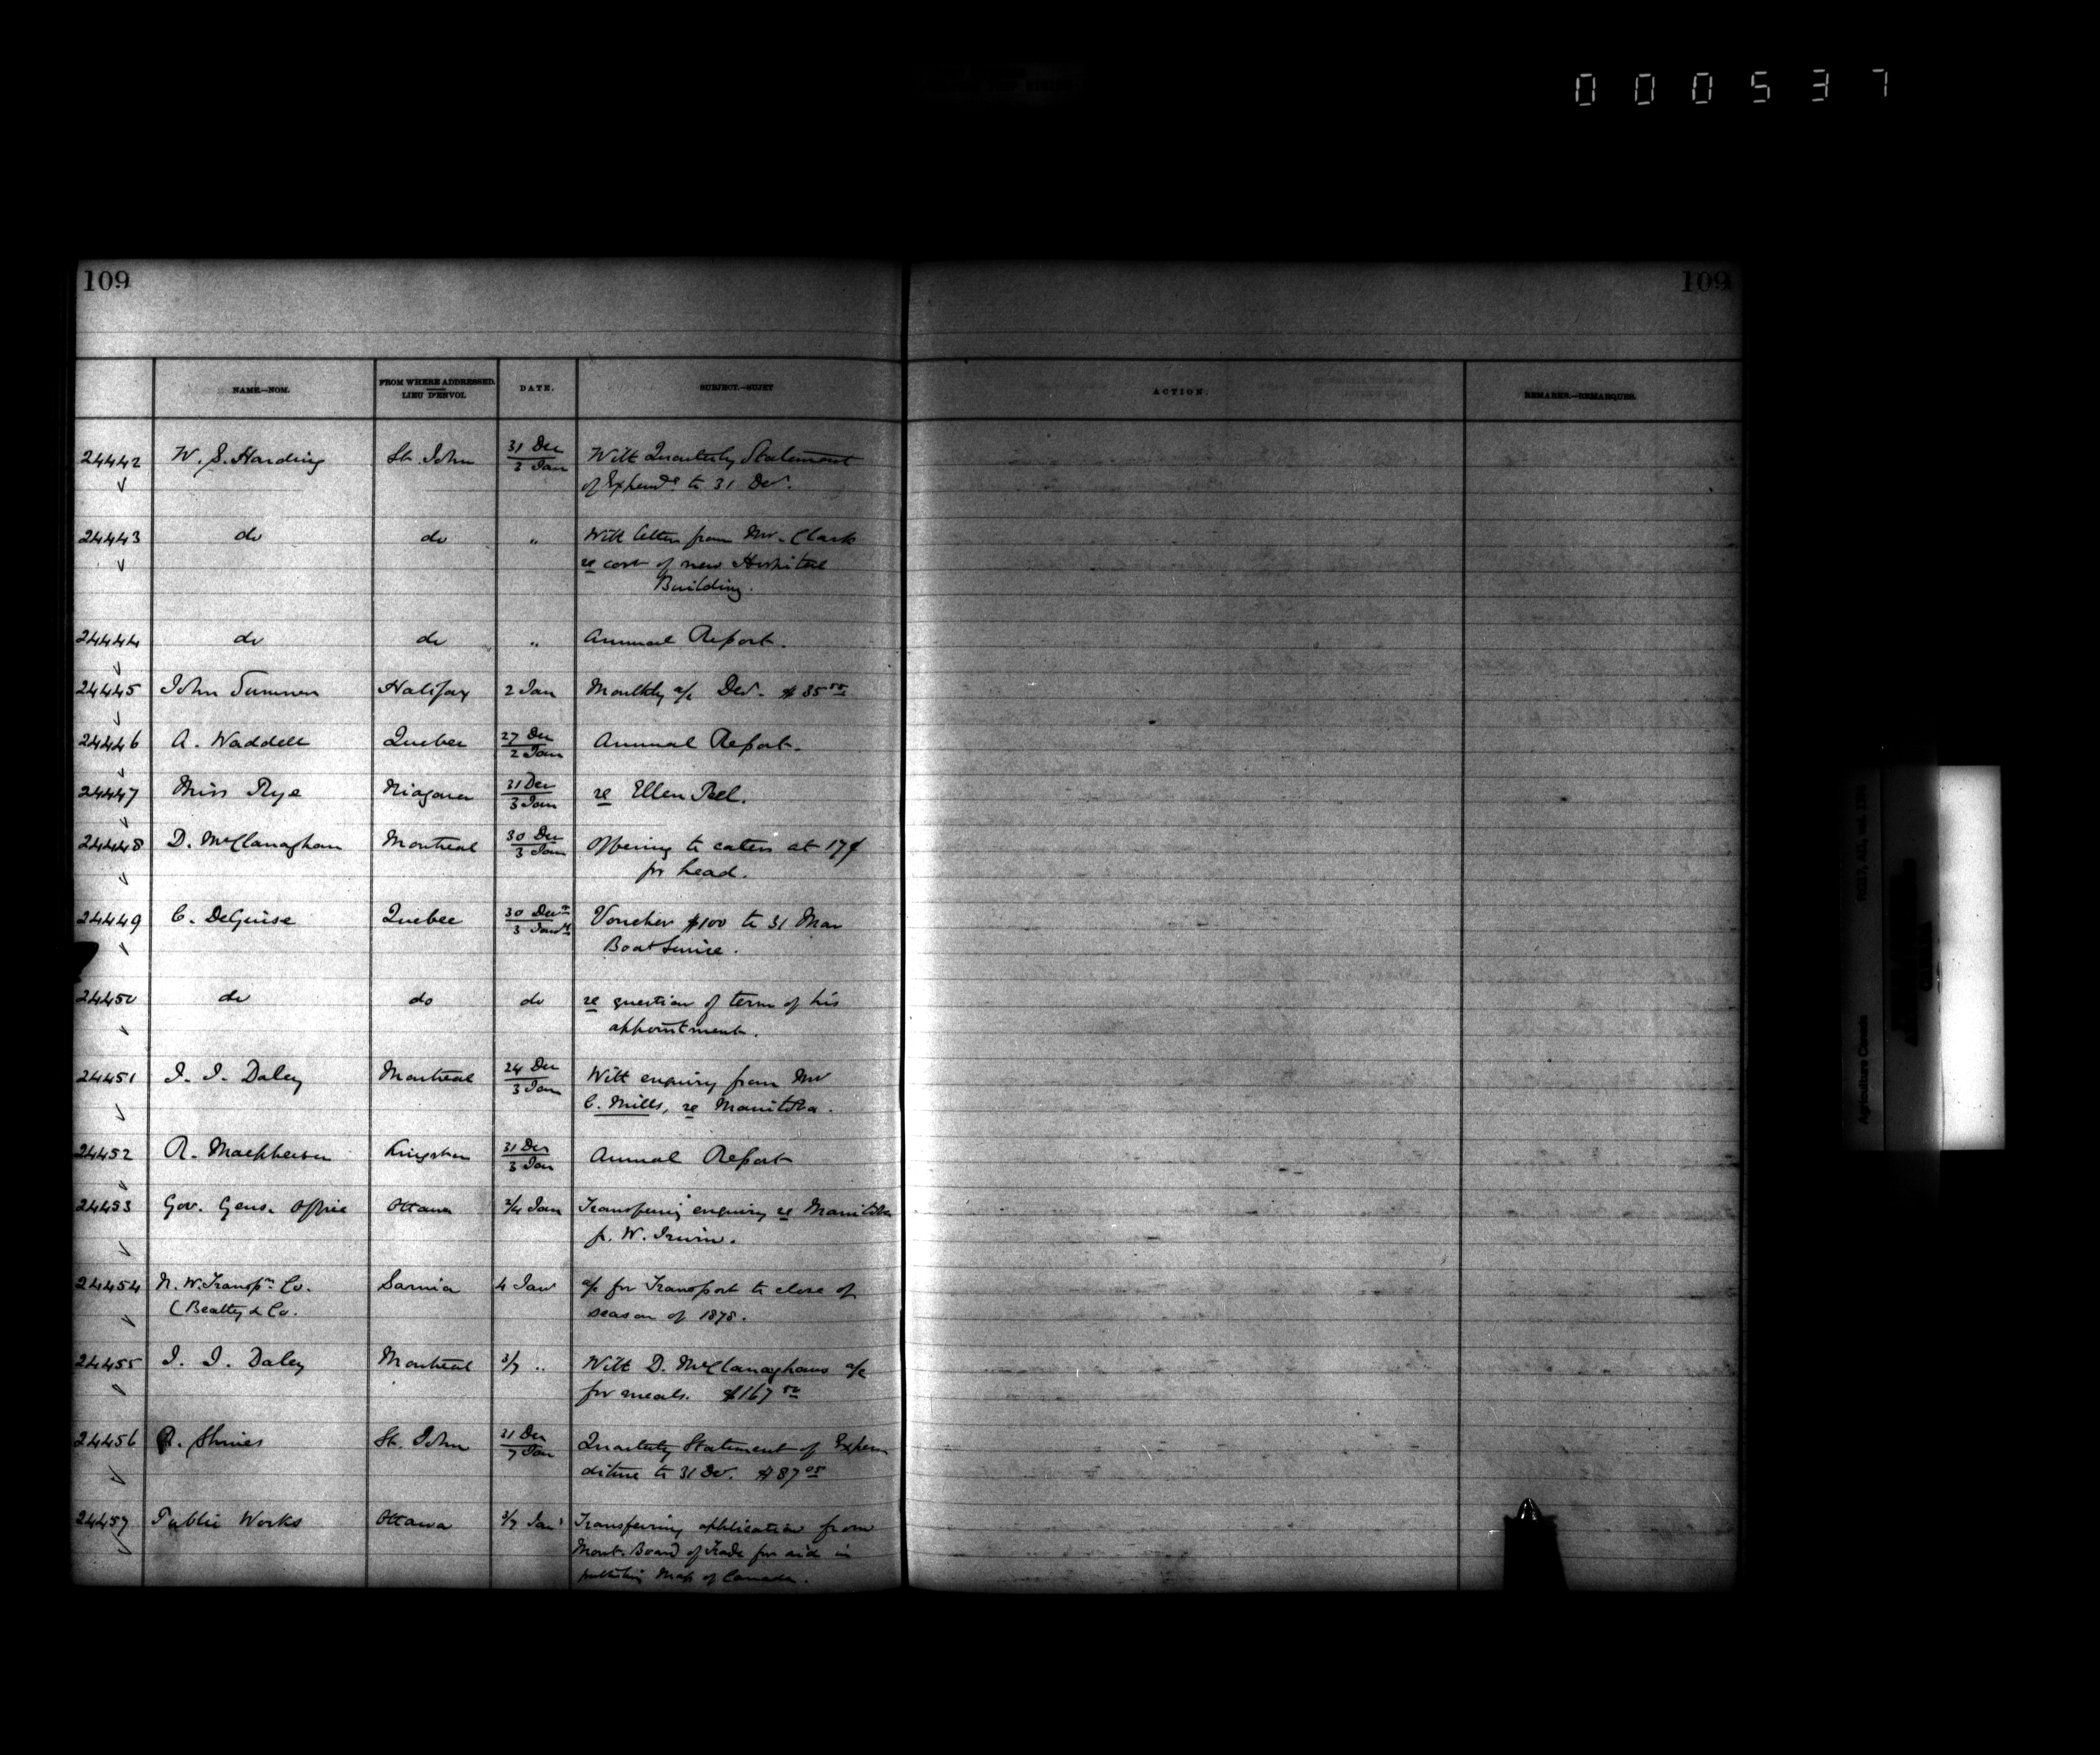 000537
109 109
NAME.—NOM. FROM WHERE ADDRESSED. LIEU D'ENVOI. DATE. SUBJECT.—SUJET ACTION. REMARKS.—REMARQUES.
24442 W. S. Harding St. John 31 Dec / 3 Jan With Quarterly Statement
of Expendre to 31 Decr.
24443 do do " With letter from Mr. Clark
re cost of new Hospital
Building.
24444 do do " Annual Report.
24445 John Sumner Halifax 2 Jan Monthly a/c Decr. $35
24446 A. Waddell Quebec 27 Dec / 2 Jan Annual Report.
24447 Miss Rye Niagara 31 Dec / 3 Jan re Ellen Peel.
24448 D. McClanaghan Montreal 30 Dec / 3 Jan Offering to cater at 17¢
pr head.
24449 C. DeGuise Quebec 30 Decr / 3 Jany Voucher $100 to 31 Mar
Boat Service.
24450 do do do re question of term of his
appointment.
24451 J. J. Daley Montreal 24 Dec / 3 Jan With enquiry from Mr
C. Mills, re Manitoba.
24452 R. Macpherson Kingston 31 Dec / 3 Jan Annual Report
24453 Gov. Gens. Office Ottawa 2/4 Jan Transferring enquiry re Manitoba
p. W. Irwin.
24454 N. W. Transpn Co. Sarnia 4 Jan a/c for Transport to close of
(Beatty & Co. season of 1878.
24455 J. J. Daley Montreal 3/7 " With D. McClanaghans a/c
for meals. $167 50
24456 R. Shives St. John 31 Dec / 7 Jan Quarterly Statement of Expen
diture to 31 Dec. $87 05
24457 Public Works Ottawa 3/7 Jan Transferring application from
Mont. Board of Trade for aid in
publishing Map of Canada.
Agriculture Canada